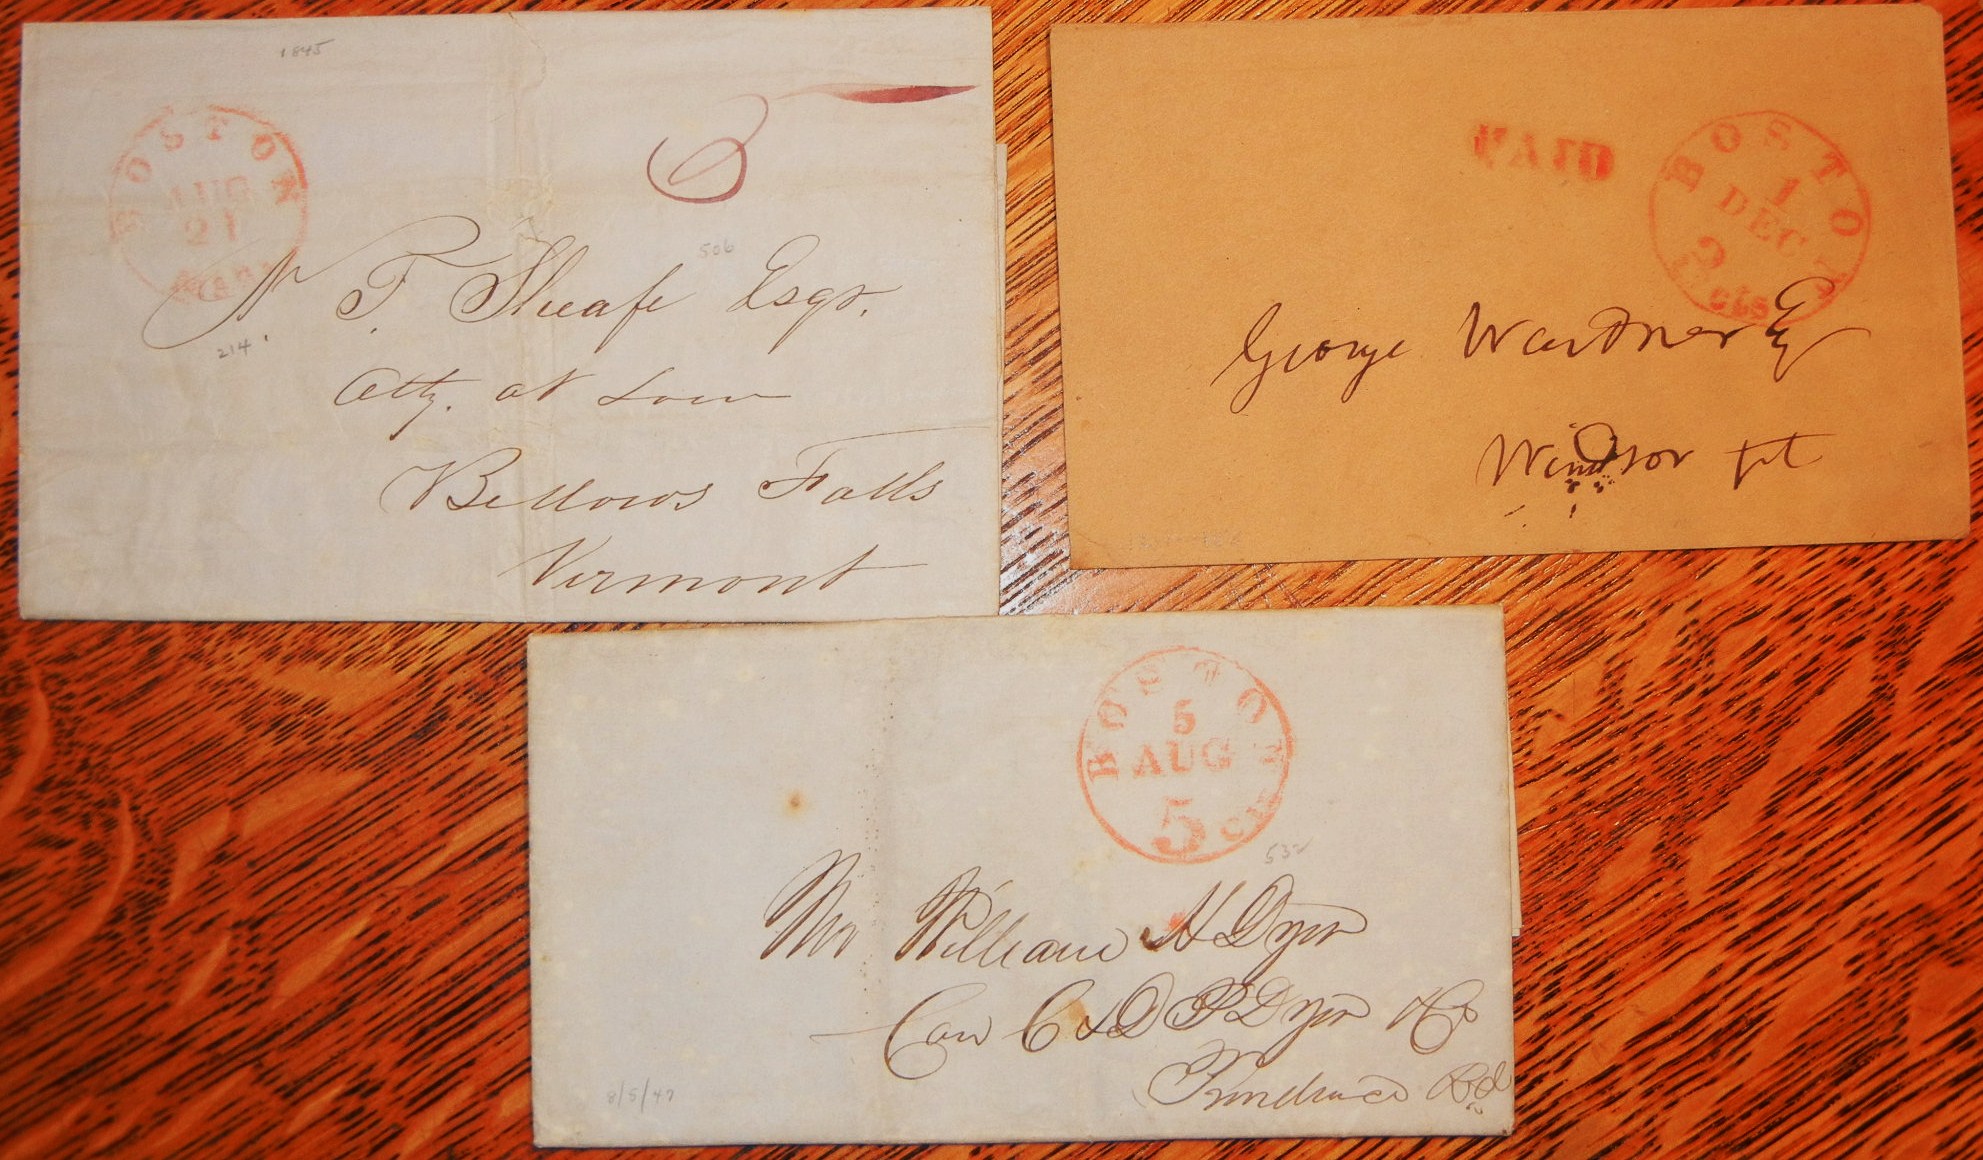 1845
BOSTON
AUG
21
MASS
5
506
N. F. Sheafe Esqr.
214
Atty. at Law
Bellows Falls
Vermont
PAID
BOSTON
1
DEC
cts
George Wardner Esq
Windsor Vt
BOSTON
5
AUG
5 cts
532
Mr William H Dyer
Care C & D P Dyer & Co
Providence
8/5/47